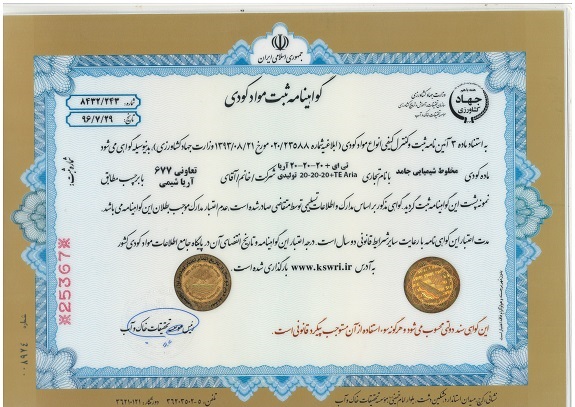 جمهوری اسلامی ایران
گواهینامه ثبت مواد کودی
وزارت جهاد کشاورزی
جهاد
کشاورزی
شماره: ۸۴۳۲/۲۴۳
تاریخ: ۹۶/۷/۲۹
به استناد ماده ۳ آئین نامه ثبت و کنترل کیفی انواع مواد کودی (ابلاغیه شماره ۰۲۰/۲۳۵۸۸ مورخ ۱۳۹۳/۰۸/۲۱ وزارت جهاد کشاورزی) بدینوسیله گواهی می شود
ماده کودی مخلوط شیمیایی جامد با نام تجاری تی ای + ۲۰-۲۰-۲۰ آریا 20-20-20+TE Aria تولیدی شرکت/خانم/آقای تعاونی ۶۷۷ آریا شیمی با برچسب مطابق
نمونه پشت این گواهینامه ثبت گردید. گواهی مذکور بر اساس مدارک و اطلاعات تسلیمی توسط متقاضی صادر شده است. عدم اعتبار مدارک موجب بطلان این گواهینامه می باشد.
مدت اعتبار این گواهی نامه با رعایت سایر شرایط قانونی دو سال است. درجه اعتبار این گواهینامه و تاریخ انقضای آن در پایگاه جامع اطلاعات مواد کودی کشور
به آدرس www.kswri.ir بارگذاری شده است.
رئیس موسسه تحقیقات خاک و آب
این گواهی سند دولتی محسوب می شود و هرگونه سوء استفاده از آن مستوجب پیگرد قانونی است.
شماره ثبت:
※25367※
شماره ۰۰۸۹۲۴
نشانی: کرج، میدان استاندارد، مشکین دشت، بلوار امام خمینی، موسسه تحقیقات خاک و آب تلفن: ۵-۳۶۲۰۳۵۰۲ دورنگار: ۳۶۲۱۰۱۲۱